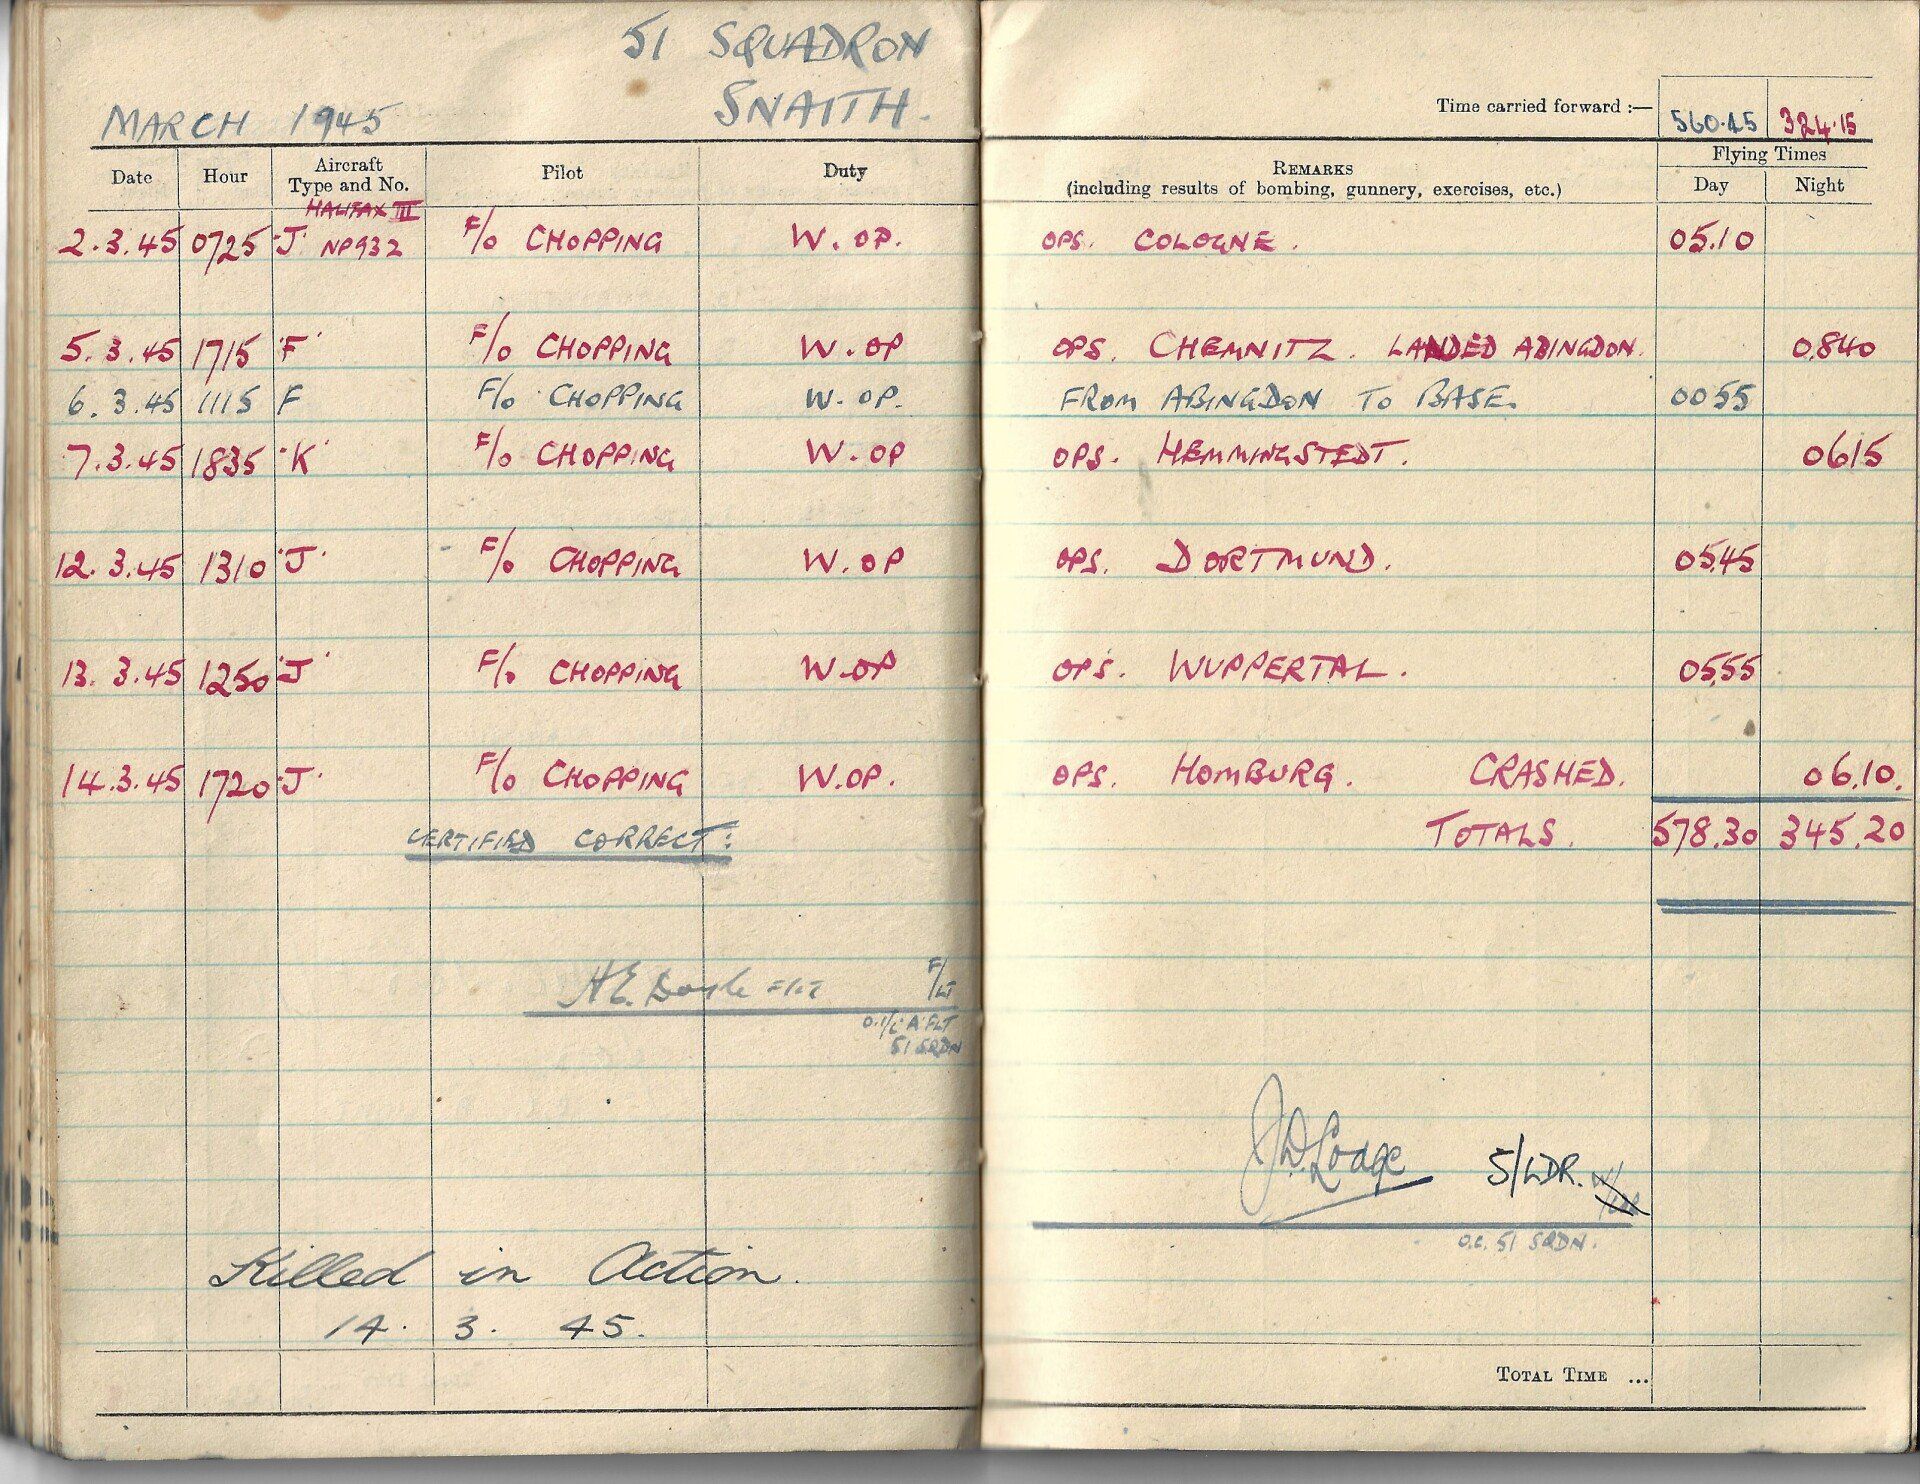 51 SQUADRON
SNAITH.
MARCH 1945
Time carried forward :— 560.45 324.15
Date Hour Aircraft Type and No. Pilot Duty REMARKS (including results of bombing, gunnery, exercises, etc.) Flying Times Day Night
HALIFAX III
2.3.45 0725 'J' NP932 F/O CHOPPING W.OP. OPS. COLOGNE. 05.10
5.3.45 1715 'F' F/O CHOPPING W.OP OPS. CHEMNITZ. LANDED ABINGDON. 0840
6.3.45 1115 F F/O CHOPPING W.OP. FROM ABINGDON TO BASE. 0055
7.3.45 1835 'K' F/O CHOPPING W.OP OPS. HEMMINGSTEDT. 0615
12.3.45 1310 'J' F/O CHOPPING W.OP OPS. DORTMUND. 05.45
13.3.45 1250 'J' F/O CHOPPING W.OP OPS. WUPPERTAL. 05.55
14.3.45 1720 'J' F/O CHOPPING W.OP. OPS. HOMBURG. CRASHED. 06.10.
CERTIFIED CORRECT: TOTALS. 578.30 345.20
H.E. Doyle F/LT F/LT
O.I/C 'A' FLT
51 SQDN
J.D. Lodge S/LDR.
O.C. 51 SQDN.
Killed in Action.
14. 3. 45.
TOTAL TIME ...